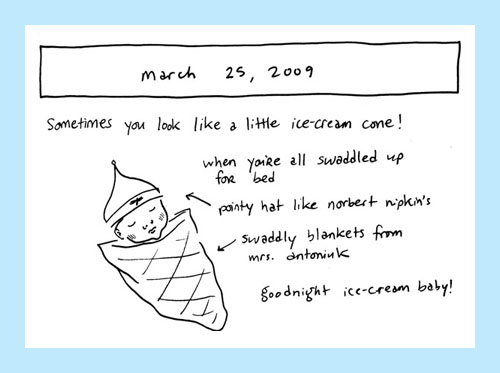 march 25, 2009
Sometimes you look like a little ice-cream cone!
when you're all swaddled up
for bed
pointy hat like norbert nipkin's
swaddly blankets from
mrs. antoniuk
goodnight ice-cream baby!